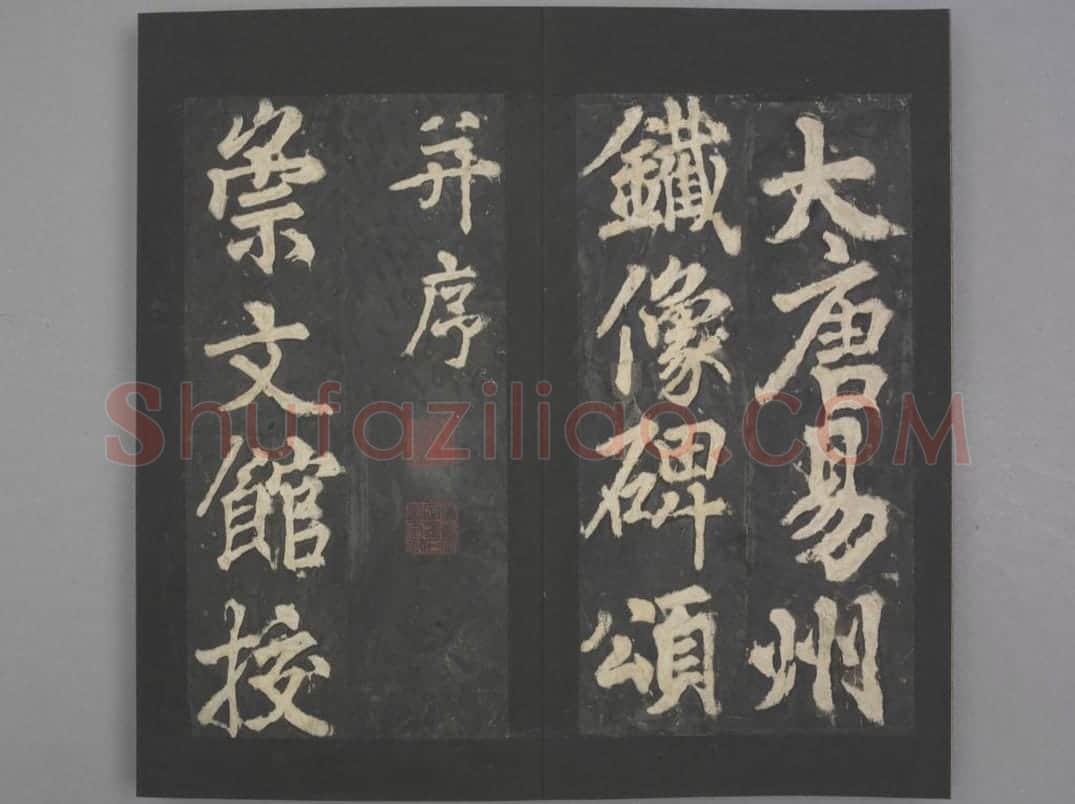 大唐易州
鐵像碑頌
并序
崇文館按
Shufaziliao.COM